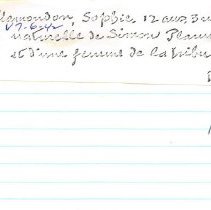 Sophie 12 ans, 3 m
17-6-42
naturelle de Simon Plam
et d'une femme de la tribu